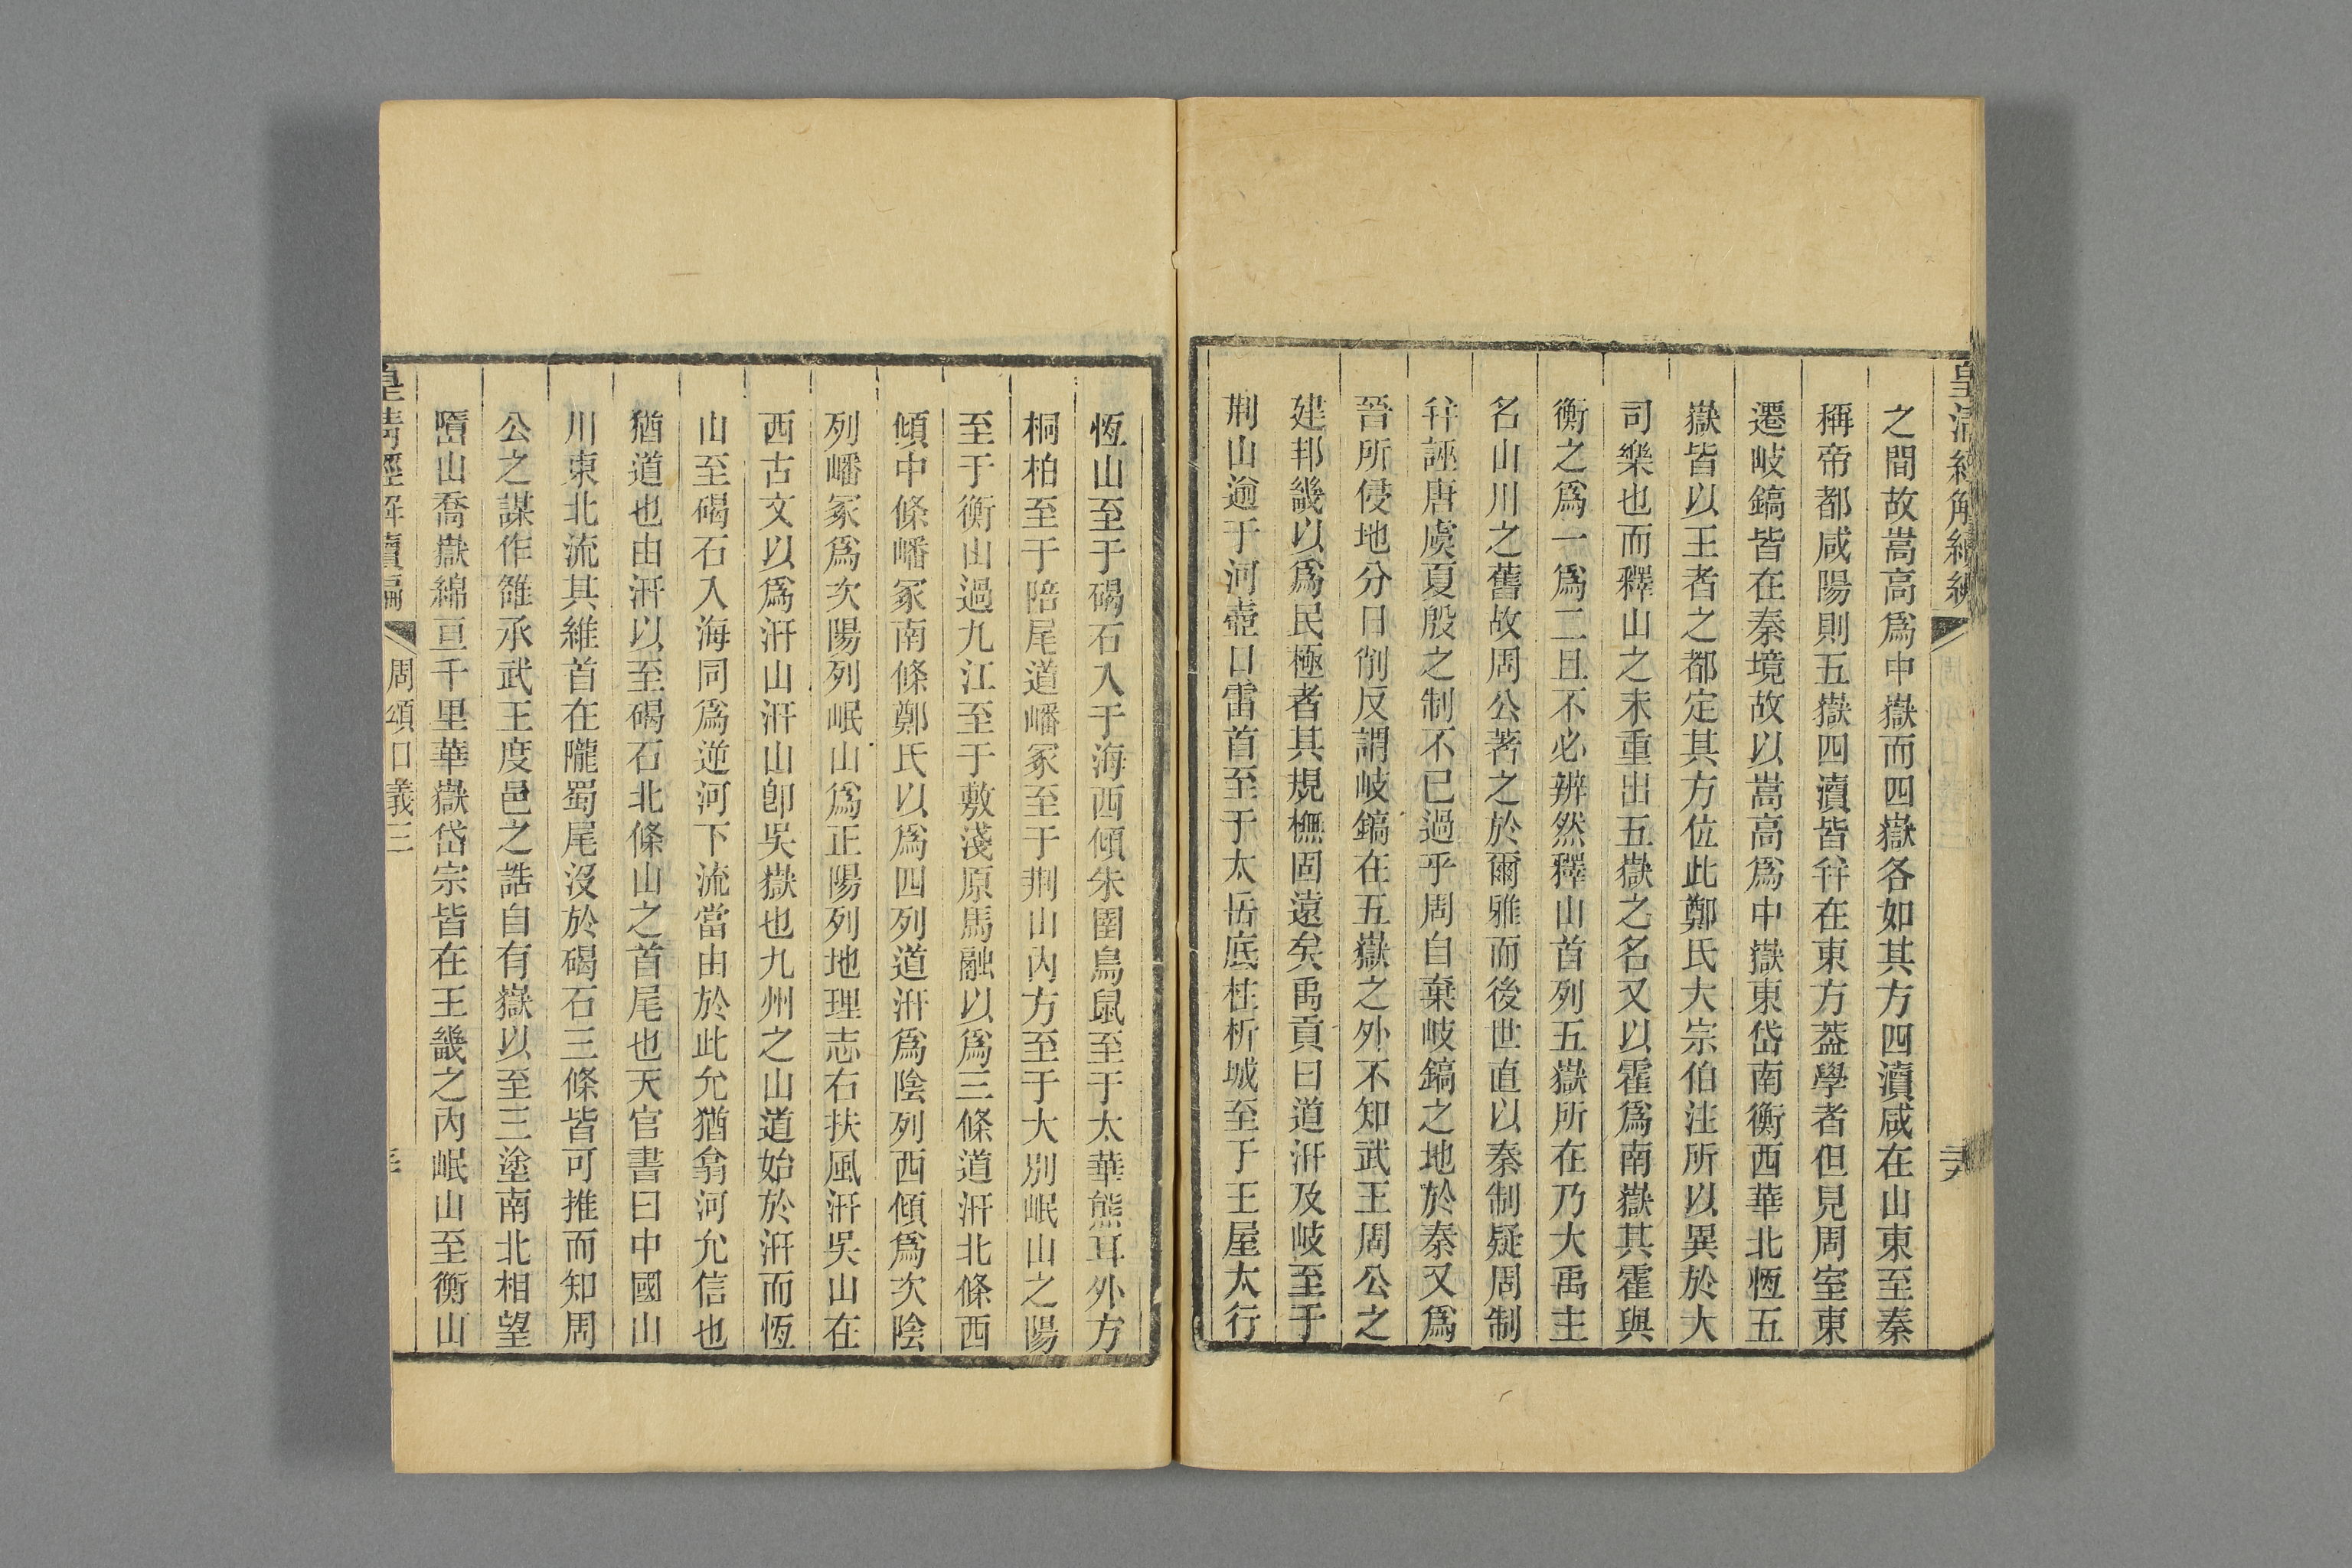 皇清經解續編
之間故嵩高爲中嶽而四嶽各如其方四瀆咸在山東至秦
稱帝都咸陽則五嶽四瀆皆幷在東方蓋學者但見周室東
遷岐鎬皆在秦境故以嵩高爲中嶽東岱南衡西華北恆五
嶽皆以王者之都定其方位此鄭氏大宗伯注所以異於大
司樂也而釋山之末重出五嶽之名又以霍爲南嶽其霍與
衡之爲一爲二且不必辨然釋山首列五嶽所在乃大禹主
名山川之舊故周公著之於爾雅而後世直以秦制疑周制
幷誣唐虞夏殷之制不已過乎周自棄岐鎬之地於秦又爲
晉所侵地分日削反謂岐鎬在五嶽之外不知武王周公之
建邦畿以爲民極者其規橅固遠矣禹貢曰道汧及岐至于
荆山逾于河壺口雷首至于太岳底柱析城至于王屋太行
恆山至于碣石入于海西傾朱圉鳥鼠至于太華熊耳外方
桐柏至于陪尾道嶓冢至于荆山內方至于大別岷山之陽
至于衡山過九江至于敷淺原馬融以爲三條道汧北條西
傾中條嶓冢南條鄭氏以爲四列道汧爲陰列西傾爲次陰
列嶓冢爲次陽列岷山爲正陽列地理志右扶風汧吳山在
西古文以爲汧山汧山卽吳嶽也九州之山道始於汧而恆
山至碣石入海同爲逆河下流當由於此允猶翕河允信也
猶道也由汧以至碣石北條山之首尾也天官書曰中國山
川東北流其維首在隴蜀尾沒於碣石三條皆可推而知周
公之謀作雒承武王度邑之誥自有嶽以至三塗南北相望
嶞山喬嶽綿亘千里華嶽岱宗皆在王畿之內岷山至衡山
皇清經解續編
周頌口義三